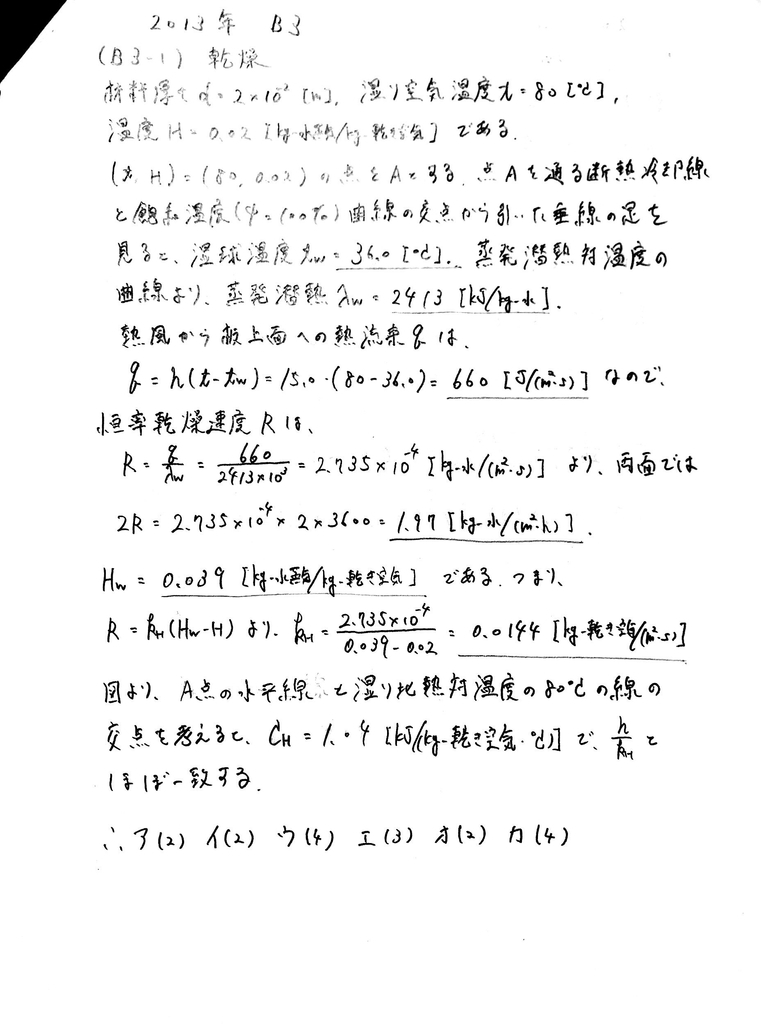 2013年 B3
(B3-1) 乾燥
板材厚さ d = 2×10² [m], 湿り空気温度 t = 80 [℃],
湿度 H = 0.02 [kg-水蒸気/kg-乾き空気] である.
(t, H) = (80, 0.02) の点を A とする. 点 A を通る断熱冷却線
と飽和湿度 (φ = 100%) 曲線の交点から引いた垂線の足を
見ると、湿球温度 tw = 36.0 [℃]. 蒸発潜熱対温度の
曲線より、蒸発潜熱 λw = 2413 [kJ/kg-水].
熱風から板上面への熱流束 q は、
q = h(t-tw) = 15.0・(80-36.0) = 660 [J/(m²・s)] なので、
恒率乾燥速度 R は、
R = q/λw = 660/(2413×10³) = 2.735×10⁻⁴ [kg-水/(m²・s)] より、両面では
2R = 2.735×10⁻⁴×2×3600 = 1.97 [kg-水/(m²・h)].
Hw = 0.039 [kg-水蒸気/kg-乾き空気] である. つまり、
R = kH(Hw-H) より. kH = 2.735×10⁻⁴/(0.039-0.02) = 0.0144 [kg-乾き空気/(m²・s)]
図より、A点の水平線と湿り比熱対湿度の80℃の線の
交点を考えると、CH = 1.04 [kJ/(kg-乾き空気・℃)] で、h/kH と
ほぼ一致する.
∴ ア(2) イ(2) ウ(4) エ(3) オ(2) カ(4)